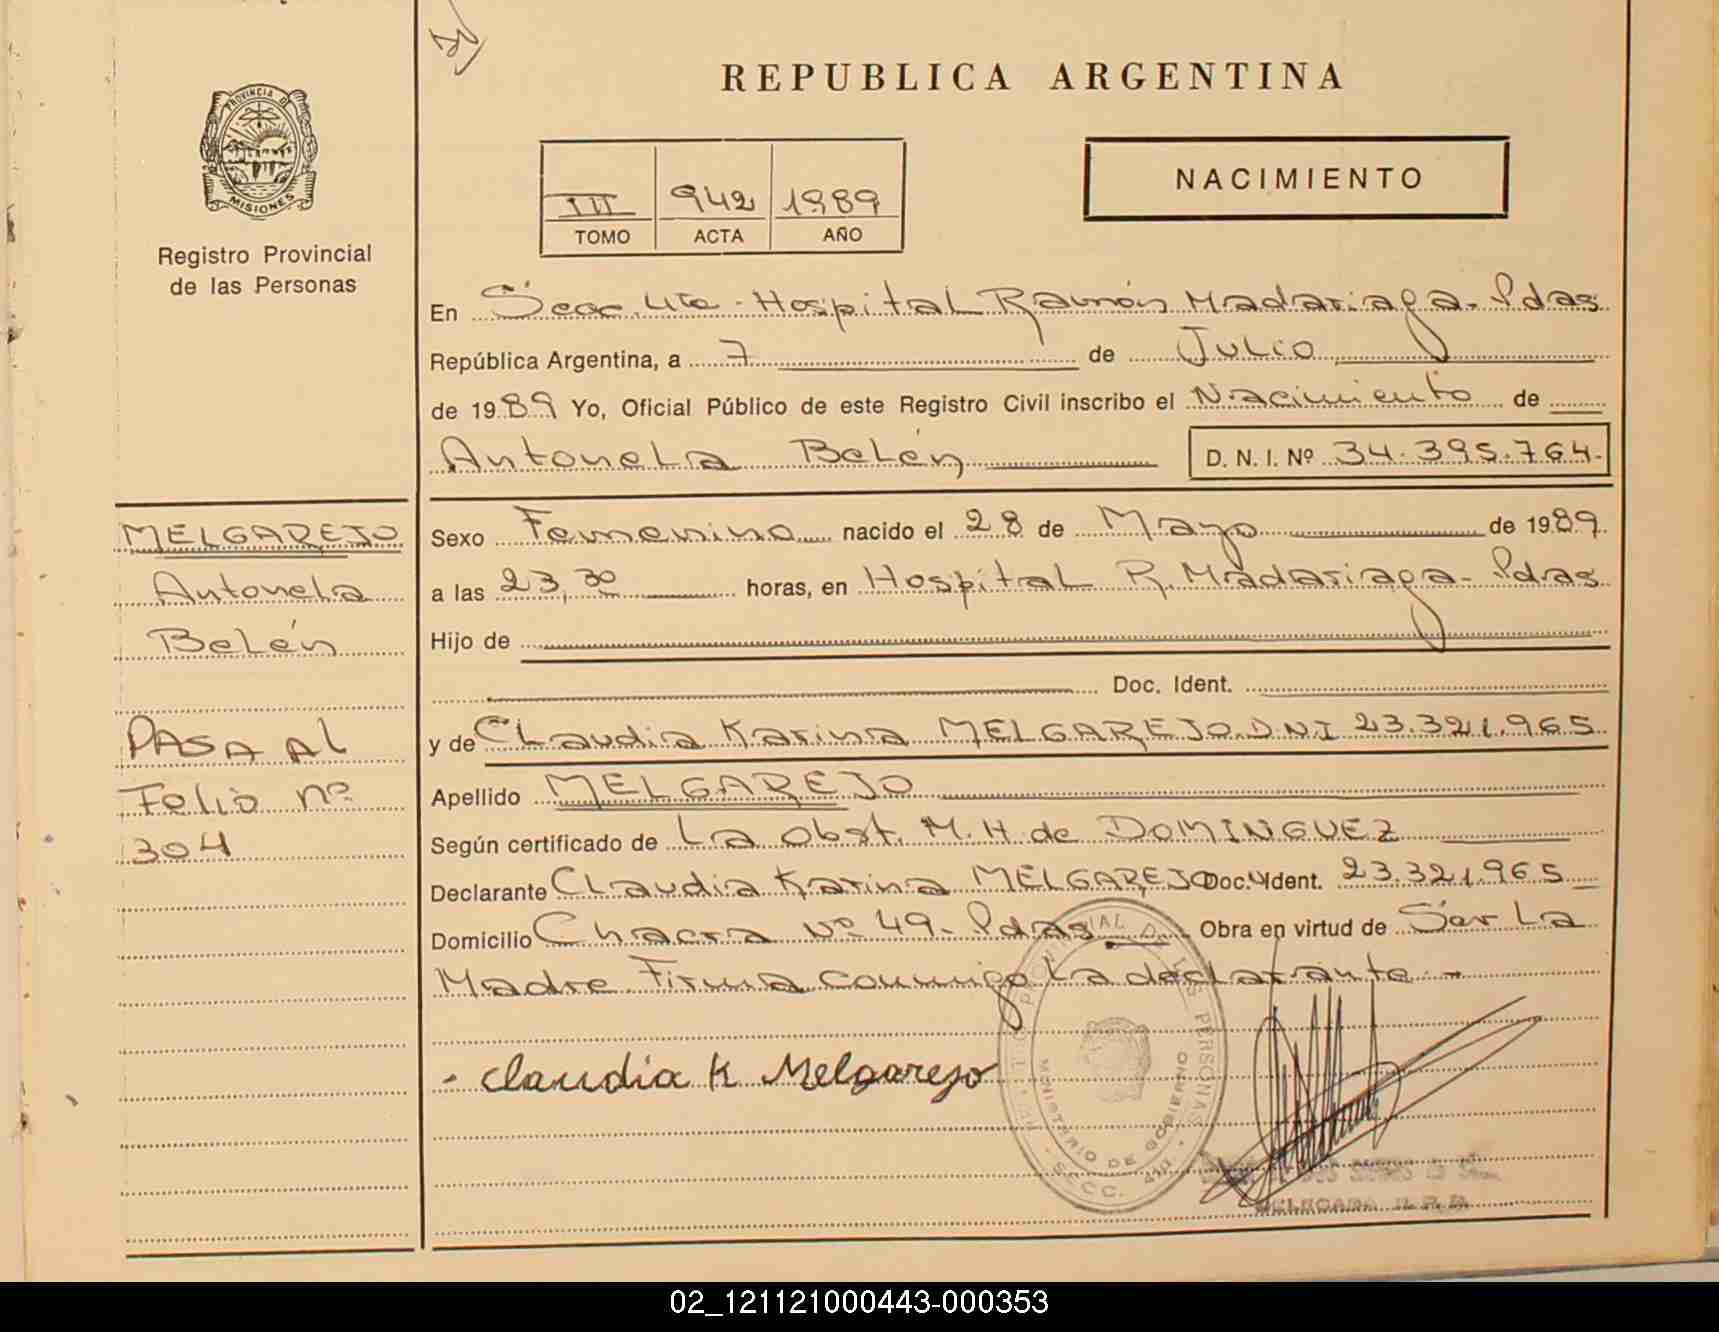 REPUBLICA ARGENTINA
PROVINCIA D
MISIONES
Registro Provincial
de las Personas
III 942 1989
TOMO ACTA AÑO
NACIMIENTO
En Secc. 4ta - Hospital Ramón Madariaga - Pdas
República Argentina, a 7 de Julio
de 1989 Yo, Oficial Público de este Registro Civil inscribo el Nacimiento de
Antonela Belén D. N. I. Nº 34.395.764.
MELGAREJO
Antonela
Belén
PASA AL
Folio nº
304
Sexo Femenino nacido el 28 de Mayo de 1989.
a las 23,30 horas, en Hospital R. Madariaga - Pdas
Hijo de
Doc. Ident.
y de Claudia Karina MELGAREJO DNI 23.321.965
Apellido MELGAREJO
Según certificado de La obst. M. H. de DOMINGUEZ
Declarante Claudia Karina MELGAREJO Doc. Ident. 23.321.965
Domicilio Chacra Nº 49 - Pdas Obra en virtud de Ser La
Madre Firma conmigo La declarante -
- Claudia K Melgarejo
PERSONAS
MINISTERIO DE GOBIERNO
SECC. 4ta
DELEGADA R.P.P.
02_121121000443-000353